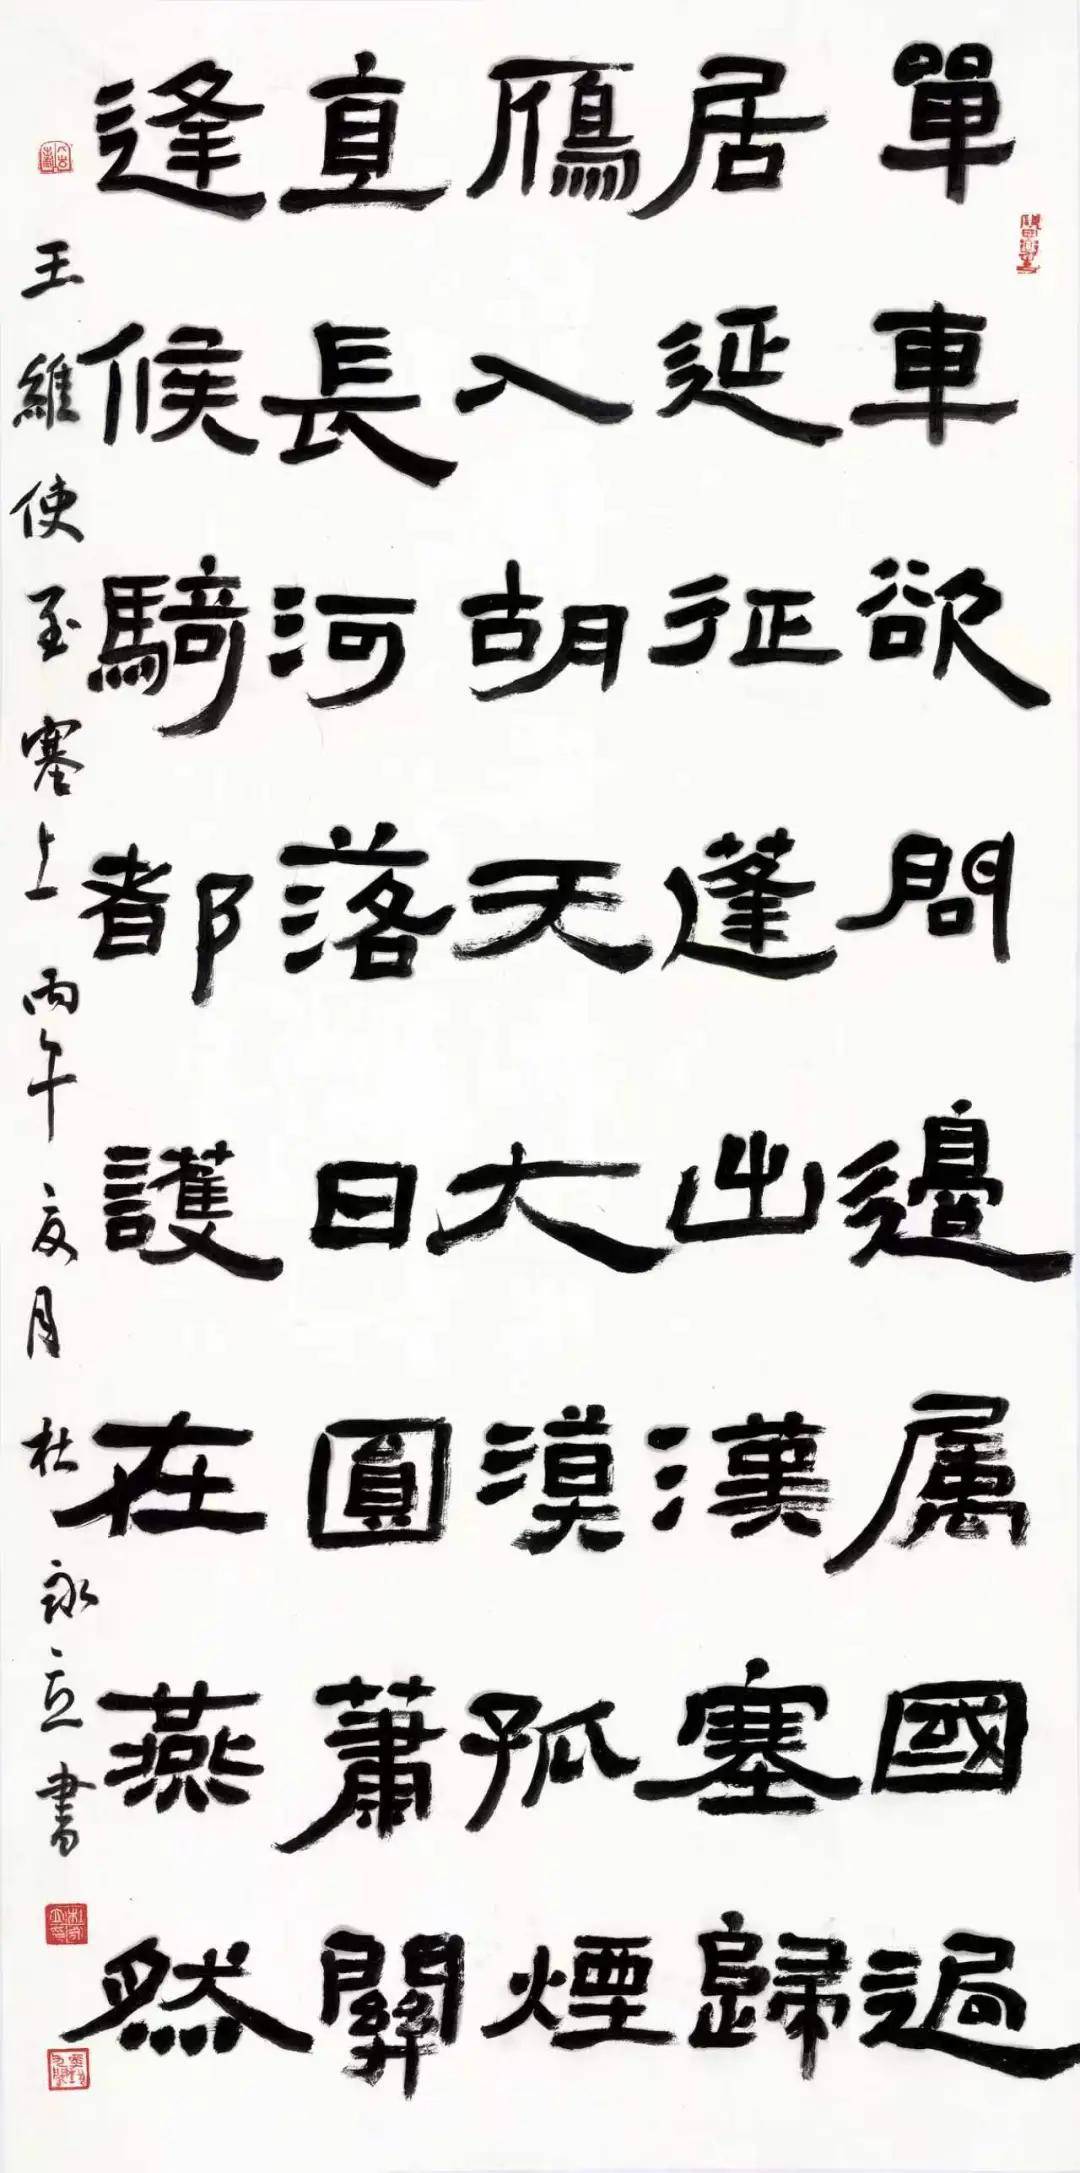 單車欲問邊属國過
居延征蓬出漢塞歸
鴈入胡天大漠孤煙
直長河落日圓蕭關
逢候騎都護在燕然
王維使至塞上 丙午夏月 杜永立書